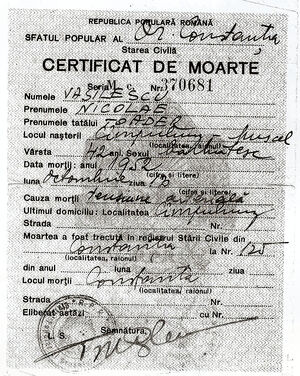 REPUBLICA POPULARĂ ROMÂNĂ
SFATUL POPULAR AL Or. Constanța
Starea Civilă
CERTIFICAT DE MOARTE
Seria Nr. 370681
Numele VASILESCU
Prenumele NICOLAE
Prenumele tatălui TOADER
Locul nașterii Cîmpulung - Muscel
(localitatea, raionul)
Vârsta 42 ani. Sexul bărbătesc
Data morții: anul 1952
(cifre și litere)
luna octombrie ziua
(cifre și litere)
Cauza morții
Ultimul domiciliu: Localitatea Cîmpulung
Strada Nr.
Moartea a fost trecută în registrul Stării Civile din
Constanța la Nr. 125
(localitatea, raionul)
din anul luna ziua
Locul morții Constanța
(localitatea, raionul)
Strada Nr.
Eliberat astăzi cu Nr.
L. S. Semnătura,